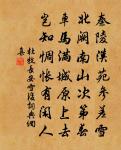 秦陵漢苑參差雪
北闕南山次第春
車馬滿城原上去
豈知惆悵有閑人
杜牧長安雪後詞典網
集